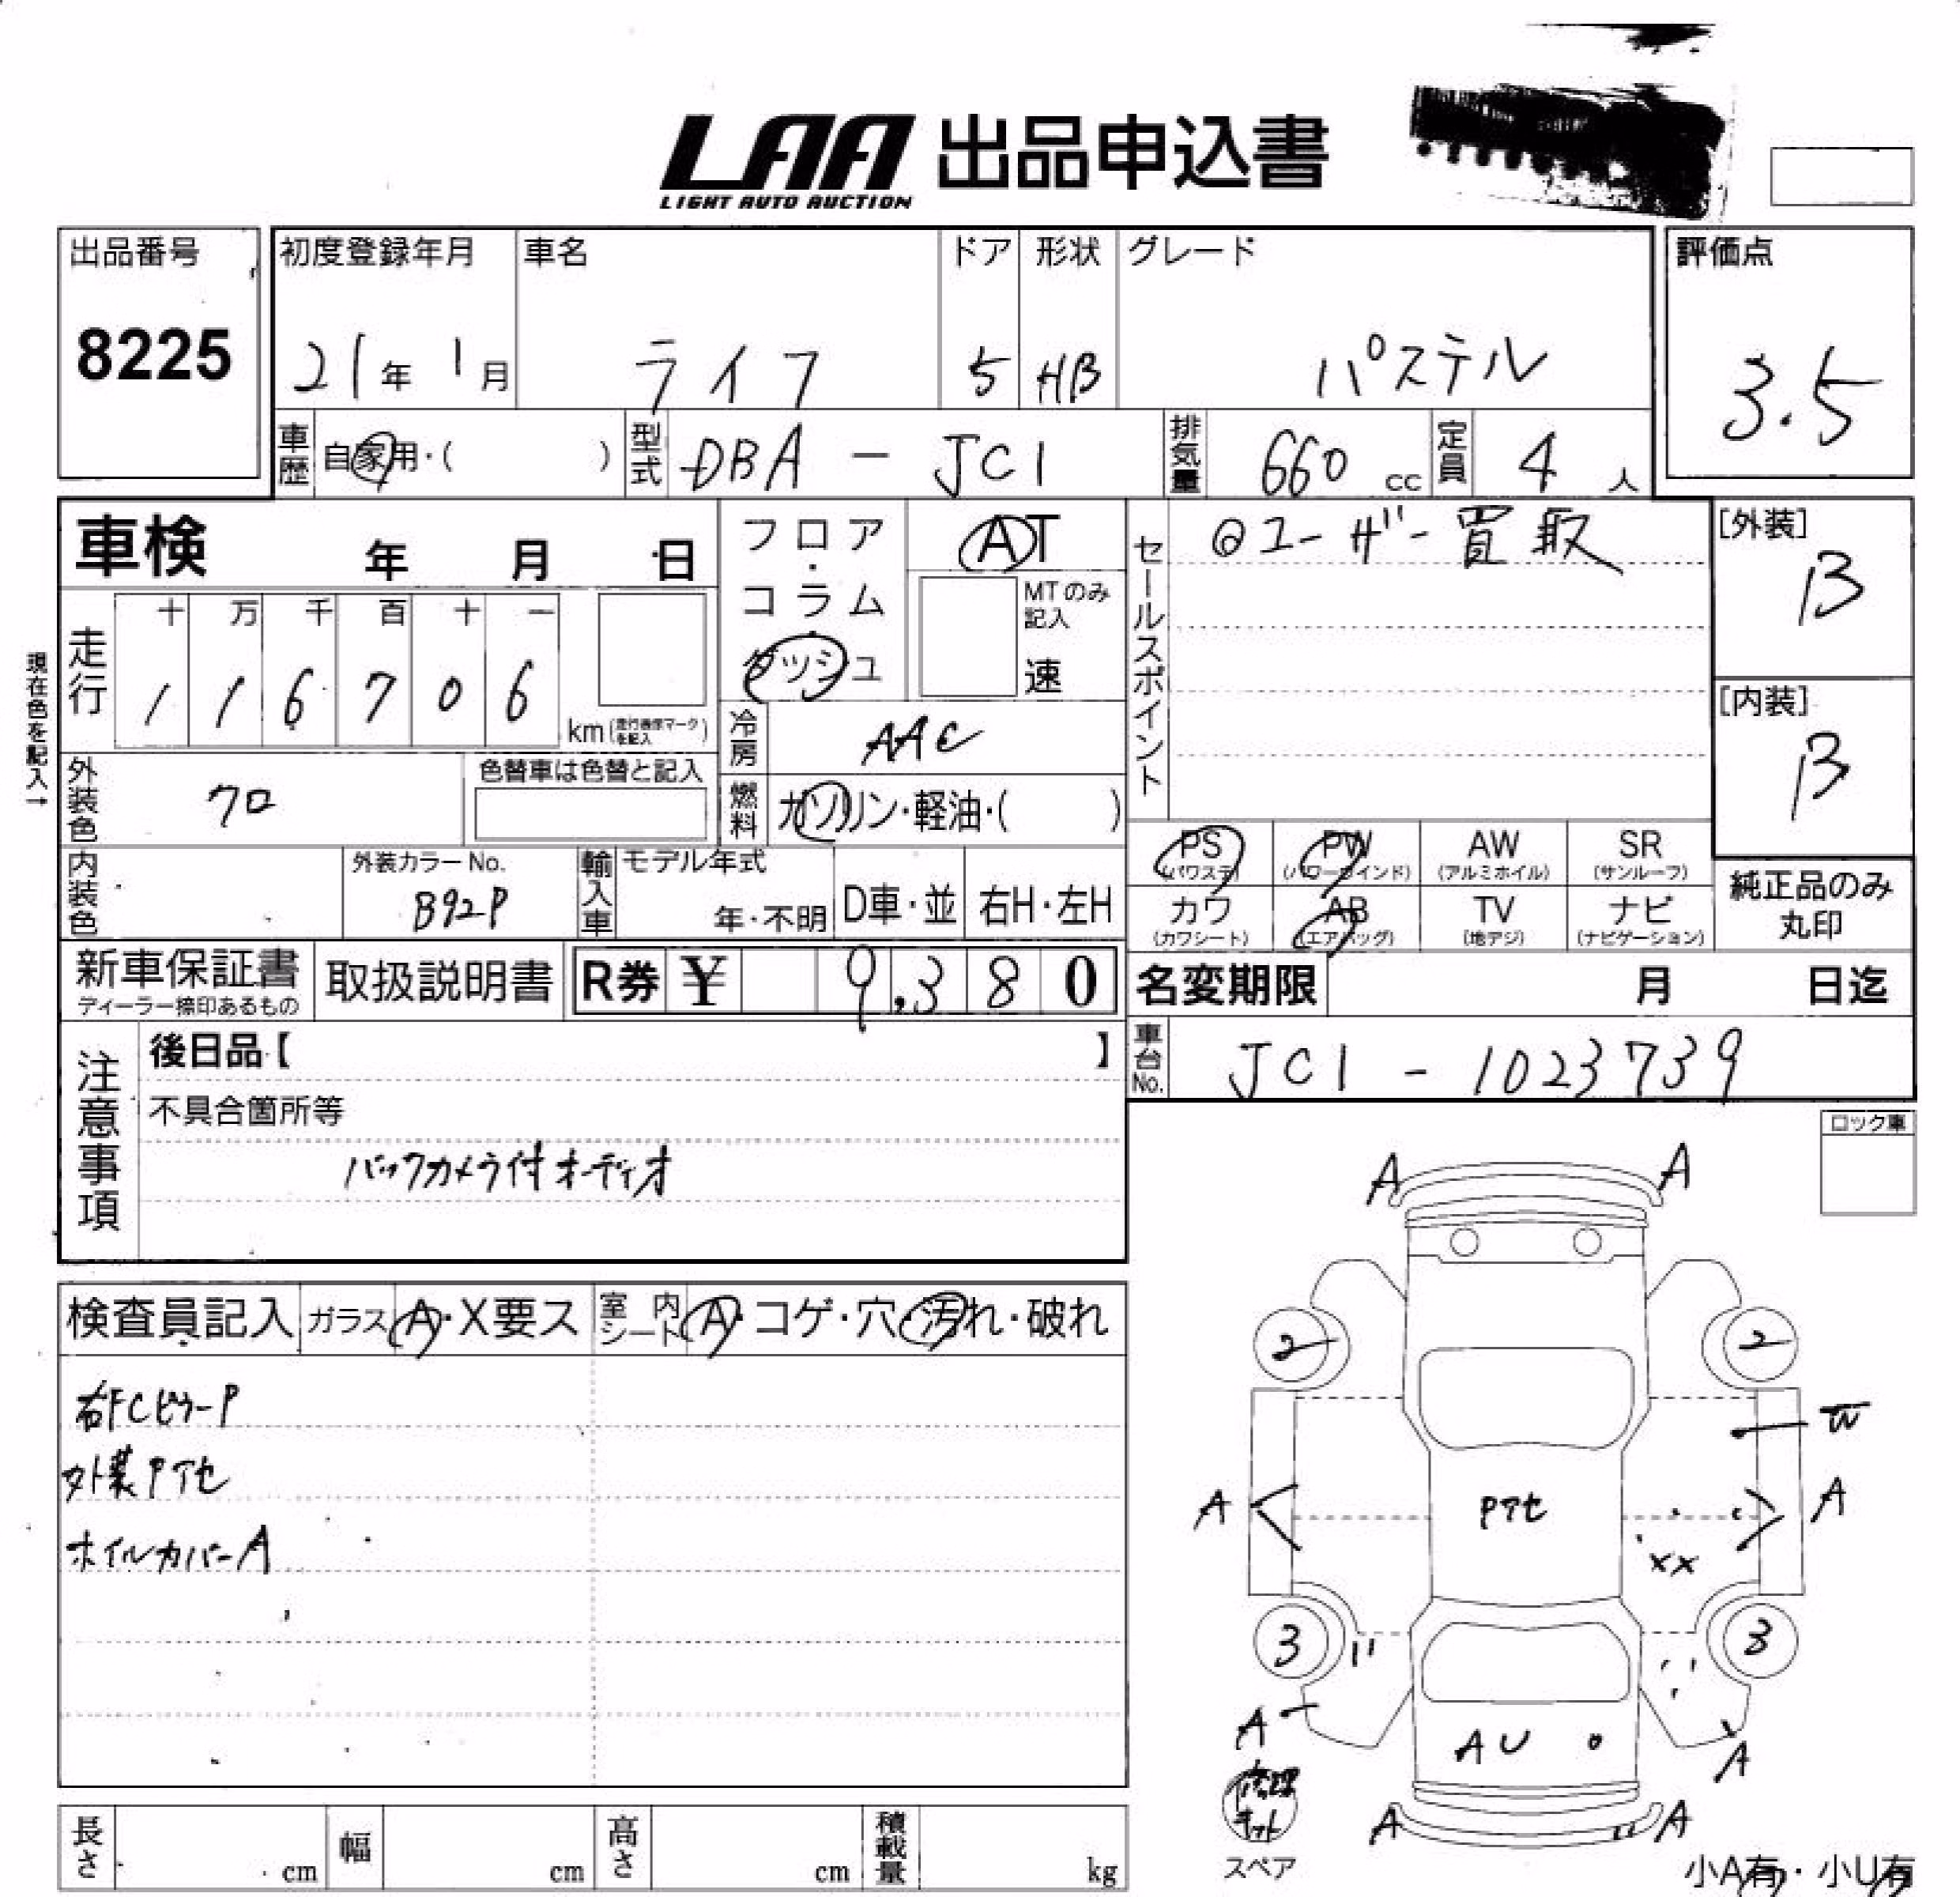 LAA 出品申込書
LIGHT AUTO AUCTION
出品番号 初度登録年月 車名 ドア 形状 グレード 評価点
8225 21年 1月 ライフ 5 HB パステル 3.5
車歴 自家用・( ) 型式 DBA - JC1 排気量 660 cc 定員 4 人
車検 年 月 日
フロア・コラム・ダッシュ
AT
MTのみ記入
速
セールスポイント
◎ユーザー買取
[外装]
B
[内装]
B
現在色を記入→
走行
十 万 千 百 十 一
1 1 6 7 0 6
km(走行機保マークを記入)
冷房 AAC
外装色 クロ
色替車は色替と記入
燃料 ガソリン・軽油・( )
PS (パワステ) PW (パワーウインド) AW (アルミホイル) SR (サンルーフ)
カワ (カワシート) AB (エアバッグ) TV (地デジ) ナビ (ナビゲーション)
純正品のみ丸印
内装色
外装カラーNo.
B92P
輸入車 モデル年式
年・不明 D車・並 右H・左H
新車保証書
ディーラー捺印あるもの
取扱説明書
R券 ¥ 9,380
名変期限 月 日迄
車台No. JC1 - 1023739
注意事項
後日品【 】
不具合箇所等
バックカメラ付オーディオ
ロック車
検査員記入 ガラス A・X要ス 室内シート A・コゲ・穴・汚れ・破れ
右FCピラーP
外装Pアセ
ホイルカバーA
A A
2 2
W
A A
Pアセ
XX
3 3
A AU A
修理キット
スペア
A A
小A有・小U有
長さ cm 幅 cm 高さ cm 積載量 kg